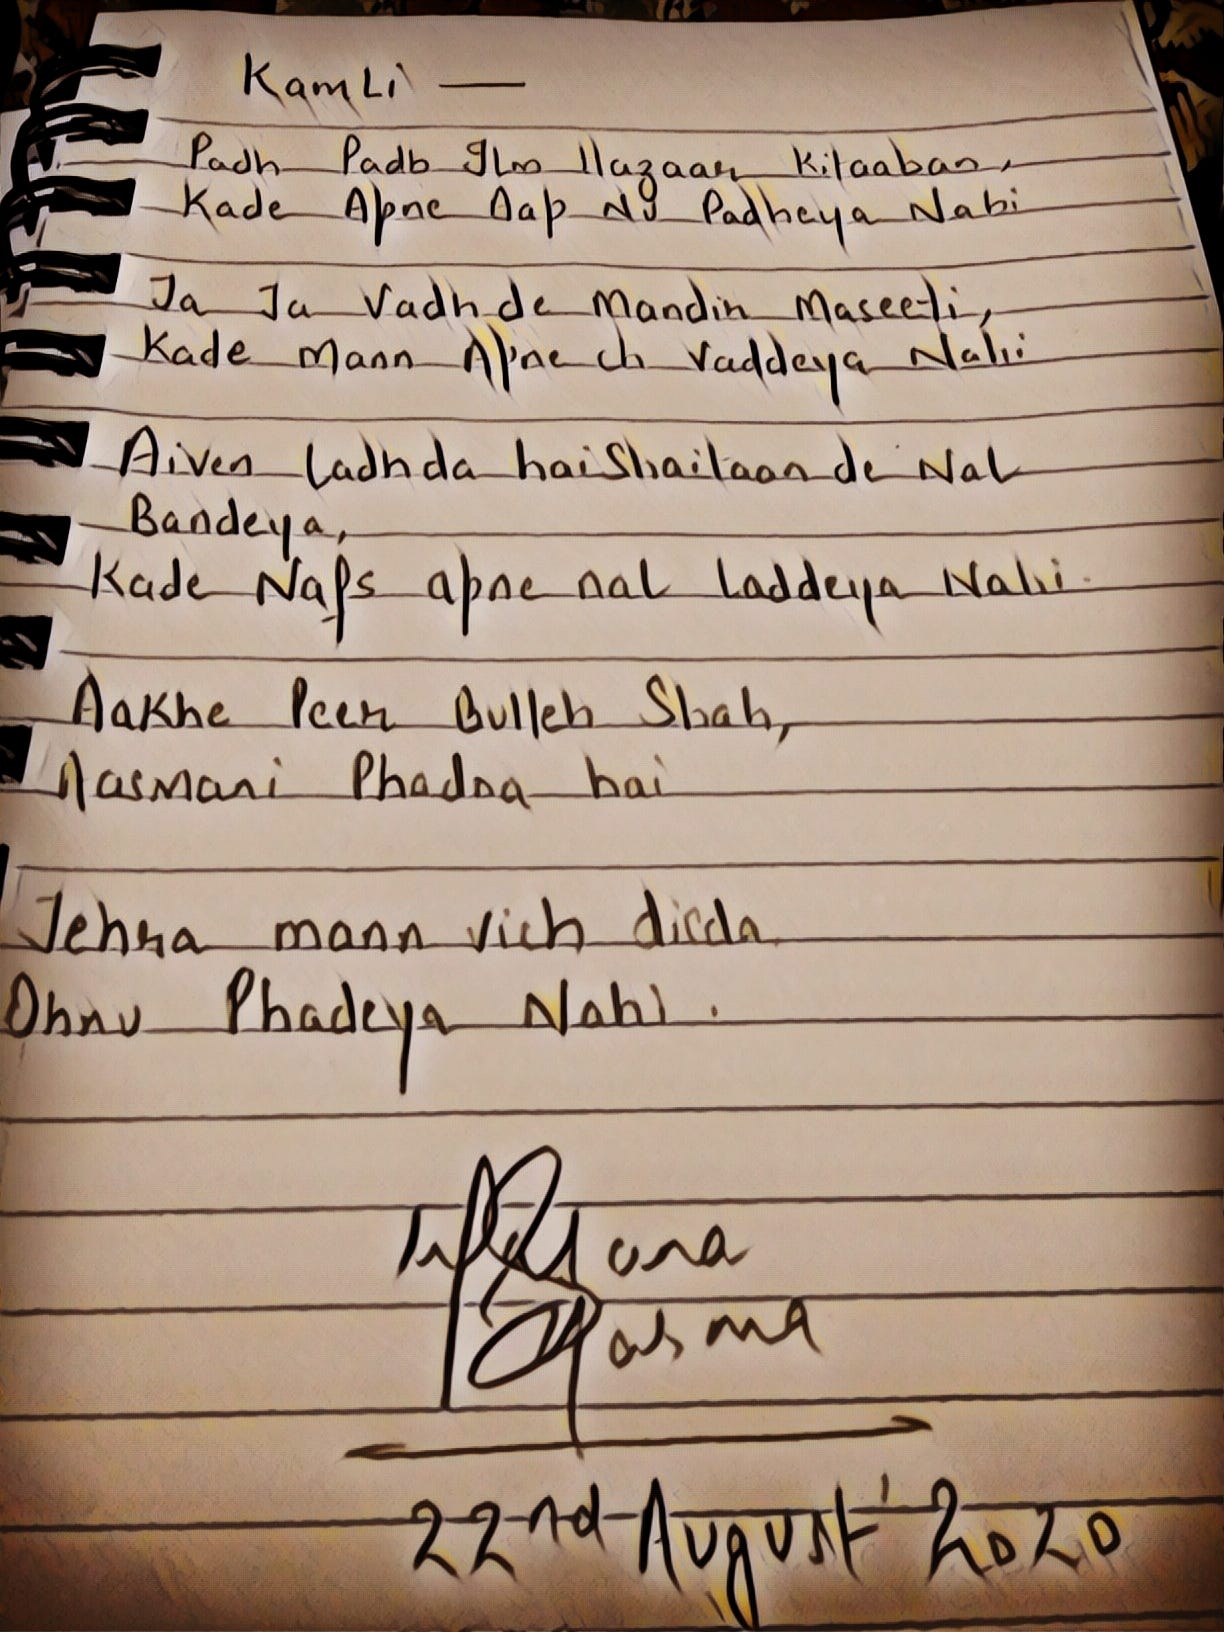 Kamli —
Padh Padh Ilm Hazaar Kitaaban,
Kade Apne Aap NU Padheya Nahi
Ja Ja Vadh de Mandir Maseeti,
Kade Mann Apne ch Vaddeya Nahi
Aiven Ladhda hai Shaitaan de Nal
Bandeya,
Kade Nafs apne nal Laddeya Nahi.
Aakhe Peer Bulleh Shah,
Aasmani Phadna hai
Jehra mann vich disda
Ohnu Phadeya Nahi.
Sharma
22nd August' 2020